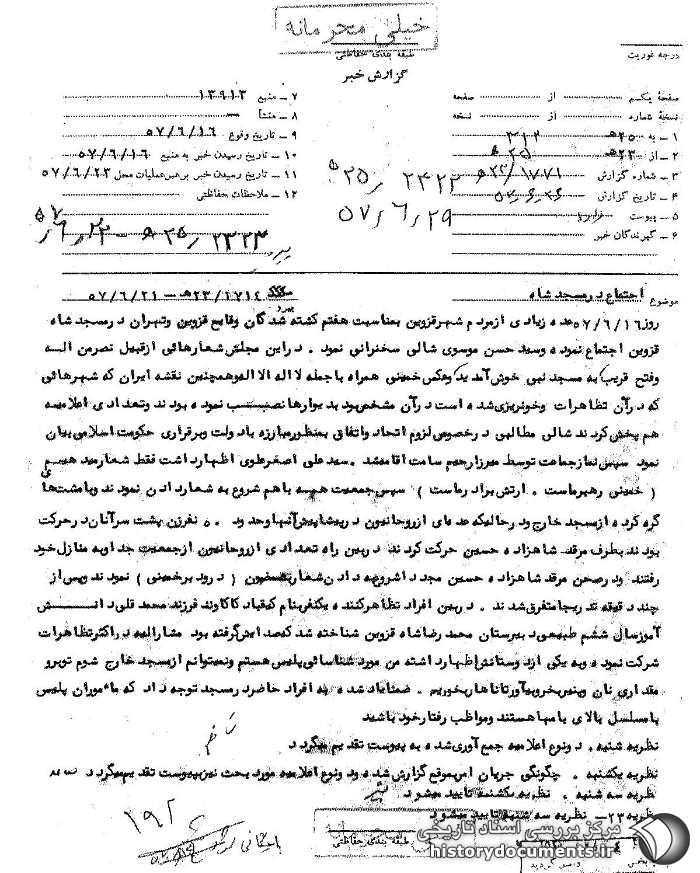 خیلی محرمانه
طبقه بندی حفاظتی
گزارش خبر
درجه فوریت
صفحه یکم از صفحه
نسخه شماره از نسخه
۱ – به ۲۵ ه‍ ۳۱۲
۲ – از ۲۳ ه‍ ۲۵ ه‍
۳ – شماره گزارش ۲۳/۱۷۷۱ ه‍
۴ – تاریخ گزارش
۵ – پیوست دارد
۶ – گیرندگان خبر
۷ – منبع ۱۳۹۱۳
۸ – منشأ
۹ – تاریخ وقوع ۵۷/۶/۱۶
۱۰ – تاریخ رسیدن خبر به منبع ۵۷/۶/۱۶
۱۱ – تاریخ رسیدن خبر برهبر عملیات محل ۵۷/۶/۲۳
۱۲ – ملاحظات حفاظتی
۲۵ ه‍/ ۲۴۲۳
۵۷/۶/۲۹
پیرو ۲۳۲۳/ ۲۵ ه‍ – ۵۷/۶/۲۲
موضوع اجتماع در مسجد شاه
پیرو ۲۳/۱۷۱۴ ه‍ – ۵۷/۶/۲۱
روز ۵۷/۶/۱۶ عده زیادی از مردم شهر قزوین بمناسبت هفتم کشته شدگان وقایع قزوین وتهران در مسجد شاه
قزوین اجتماع نموده وسید حسن موسوی شالی سخنرانی نمود . در این مجلس شعارهائی از قبیل نصر من اله
وفتح قریب به مسجد نبی خوش آمدید وعکس خمینی همراه با جمله لا اله الا اله وهمچنین نقشه ایران که شهرهائی
که در آن تظاهرات وخونریزی شده است در آن مشخص بود بدیوارها نصب نموده بودند وتعدادی اعلامیه
هم پخش کردند شالی مطالبی در خصوص لزوم اتحاد واتفاق بمنظور مبارزه با دولت وبرقراری حکومت اسلامی بیان
نمود سپس نماز جماعت توسط میرزا رحیم سامت اقامه شد . سید علی اصغر علوی اظهار داشت فقط شعار میدهیم
( خمینی رهبر ماست . ارتش برادر ماست ) سپس جمعیت همه با هم شروع به شعار دادن نمودند وبا مشت های
گره کرده از مسجد خارج ودر حالیکه عده ای از روحانیون در پیشاپیش آنها وحدود ۵۰ نفر زن پشت سر آنان در حرکت
بودند بطرف مرقد شاهزاده حسین حرکت کردند در بین راه تعدادی از روحانیون از جمعیت جدا وبه منازل خود
رفتند ودر صحن مرقد شاهزاده حسین مجددا شروع به دادن شعار بمضمون ( درود بر خمینی ) نمودند وپس از
چند دقیقه تدریجا متفرق شدند . در بین افراد تظاهر کننده یکنفر بنام کیقباد کاکاوند فرزند محمد قلی دانش
آموز سال ششم طبیعی دبیرستان محمد رضا شاه قزوین شناخته شد که صدایش گرفته بود مشارالیه در اکثر تظاهرات
شرکت نموده وبه یکی از دوستانش اظهار داشته من مورد شناسائی پلیس هستم ونمیتوانم از مسجد خارج شوم تو برو
مقداری نان وپنیر بخر وبیاور تا ناهار بخوریم . ضمنا یاد شده به افراد حاضر در مسجد توجه داد که مأموران پلیس
با مسلسل بالای بامها هستند ومواظب رفتار خود باشید
نظریه شنبه . دو نوع اعلامیه جمع آوری شده به پیوست تقدیم میگردد
نظریه یکشنبه . چگونگی جریان امر بموقع گزارش شده ودو نوع اعلامیه مورد بحث نیز بپیوست تقدیم میگردد
نظریه سه شنبه . نظریه یکشنبه تایید میشود
نظریه ۲۳ – نظریه سه شنبه تایید میشود
طبقه بندی حفاظتی
مرکز بررسی اسناد تاریخی
historydocuments.ir